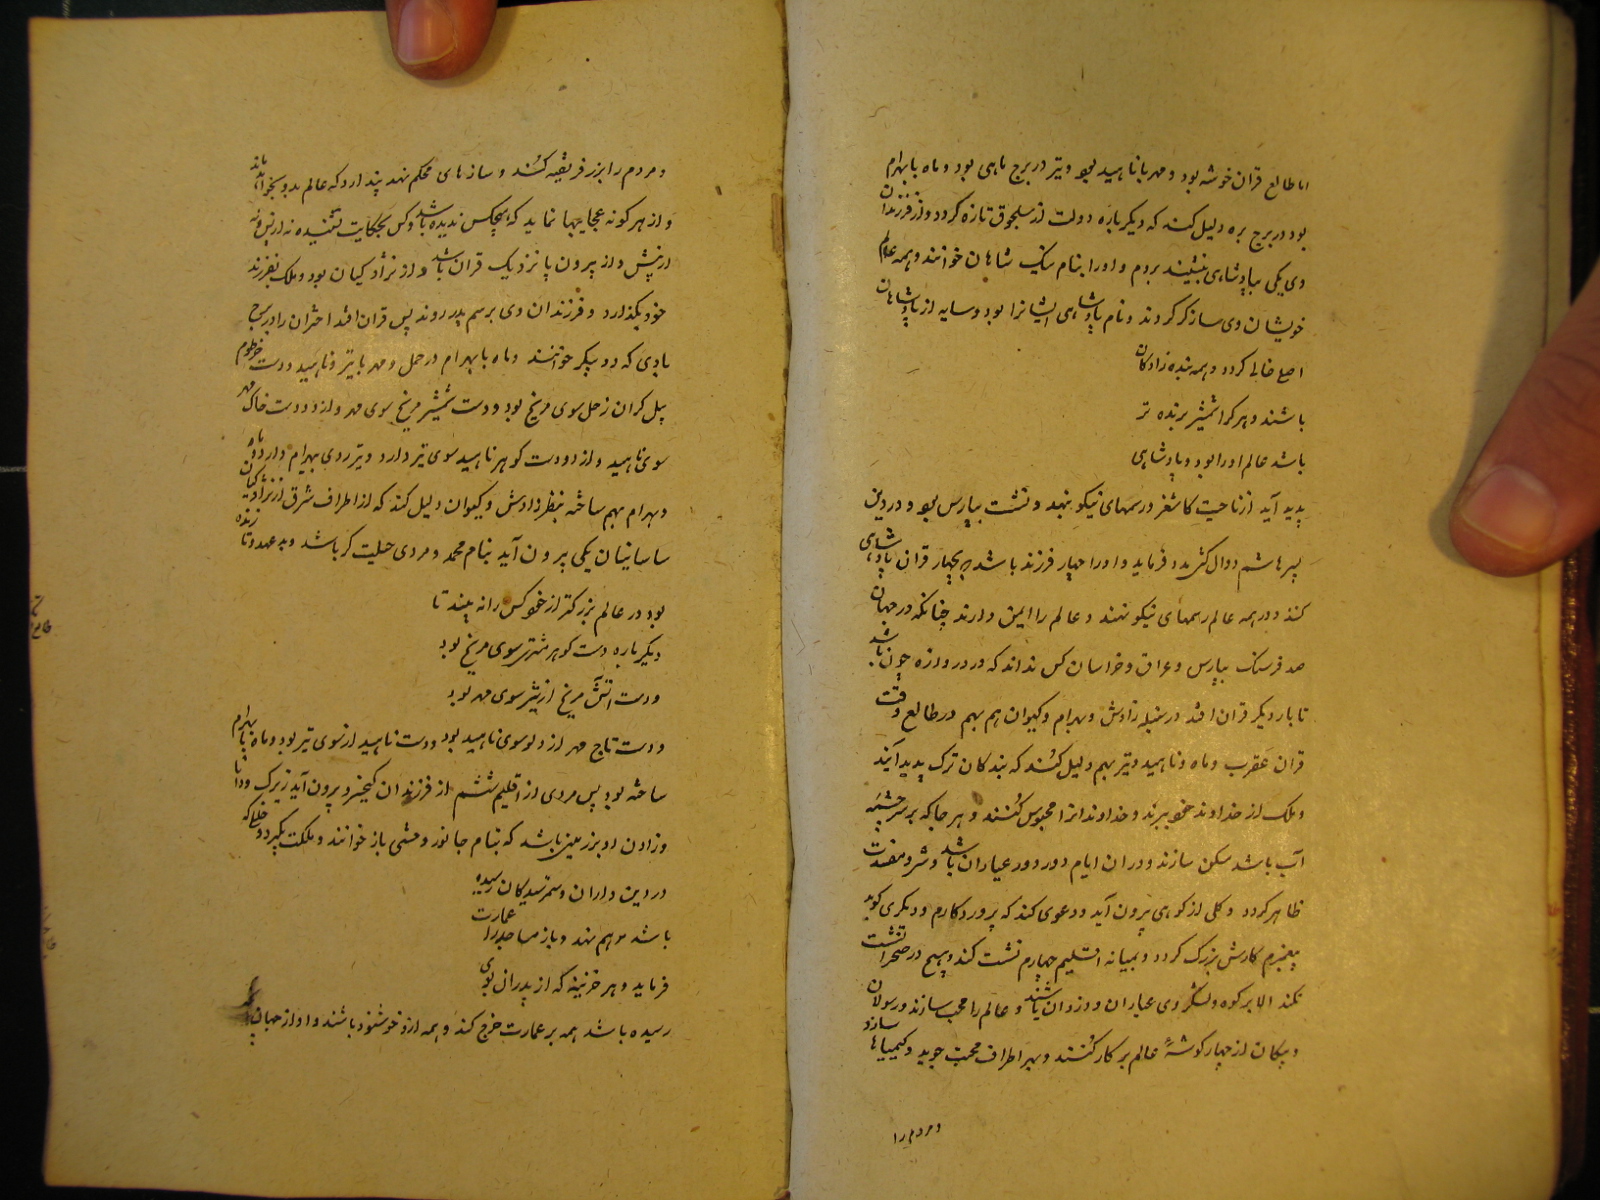 اما طالع قران خوشه بود و مهر با ناهید بود و تیر در برج ماهی بود و ماه با بهرام
بود در برج بره دلیل کند که دیکر باره دولت از سلجوق تازه کردد و از فرزندان
وی یکی بپادشاهی بنشیند بردم و او را بنام نیک شاهان خوانند و همه عالم
خویشان وی ساز کر کردند و نام پادشاهی ایشانرا بود و سایه از پادشاهان
اصل خالی کردد و همه بنده زادکان
باشند و هر کرا شمشیر برنده تر
باشد عالم او را بود و پادشاهی
پدید آید از ناحیت کاشغر و رسمهای نیکو بنهد و نشست بپارس بود و در دین
پسر هاشم دوال کشی فرماید و او را چهار فرزند باشد به چهار قران پادشاهی
کند و در همه عالم رسمهای نیکو نهند و عالم را ایمن دارند چنانکه در جهان
صد فرسنک بپارس و عراق و خراسان کس نداند که در دروازه چون باشد
تا بار دیکر قران افتد در سنبله زاوش و بهرام و کیوان هم بهم در طالع وقت
قران عقرب و ماه و ناهید و تیر بهم دلیل کنند که بندکان ترک پدید آیند
و ملک از خداوند خود ببرند و خداوندانرا محبوس کنند و هر جا که بر سر چشمه
آب باشد سکن سازند و در ان ایام دور دور عیاران باشد و شر و مفسدت
ظاهر کردد و کلی از کوهی بیرون آید و دعوی کند که پروردکارم و دیکری کوید
پیغمبرم کارش بزرک کردد و بمیانه اقلیم چهارم نشست کند و هیچ در صحرا نشست
نکند الا بر کوه و لشکر وی عیاران و دزدان باشند و عالم را محب سازند و رسولان
و پیکان از چهار کوشهٔ عالم بر کار کنند و بهر اطراف محبت جوید و کیمیاها سازد
و مردم را
و مردم را بزر فریفته کند و سازهای محکم نهد پندارد که عالم بدو بخواهد ماند
و از هر کونه عجایبها نماید که هیچکس ندیده باشد و کس بحکایت نشنیده نه از پس و نه
از پیش و از بیرون پا نزدیک قران باشد و از نژاد کیان بود و ملک بفرزند
خود بکذارد و فرزندان وی برسم پدر روند پس قران افتد اختران را در برج
بادی که دو پیکر خوانند و ماه با بهرام در حمل و مهر با تیر و ناهید و دست خرطوم
پیل کران زحل سوی مریخ بود و دست شمشیر مریخ سوی مهر و از دو دست خاک مهر
سوی ناهید و از دو دست کوهر ناهید سوی تیر دارد و تیر روی بهرام دارد و ماه
و بهرام بهم ساخته بنظر زاوش و کیوان دلیل کند که از اطراف شرق از نژاد کیان
ساسانیان یکی بیرون آید بنام محمد و مردی حیلت کر باشد و بد عهد و تا زنده
بود در عالم بزرکتر از خود کس را نه بیند تا
دیکر باره دست کوهر مشتری سوی مریخ بود
و دست آتش مریخ از شیر سوی مهر بود
و دست تاج مهر از دلو سوی ناهید بود و دست ناهید از سوی تیر بود و ماه با بهرام
ساخته بود پس مردی از اقلیم ششم از فرزندان کیخسرو بیرون آید زیرک و دانا
و زادن او بزر زمینی باشد که بنام جانور وحشی باز خوانند و مملکت بکیرد و خللی که
در دین داران و ستم رسیدکان رسیده
باشد مرهم نهد و باز مساجد را عمارت
فرماید و هر خزینه که از پدران بوی
رسیده باشد همه بر عمارت خرج کند و همه ازو خوشنود باشند و او از جهان